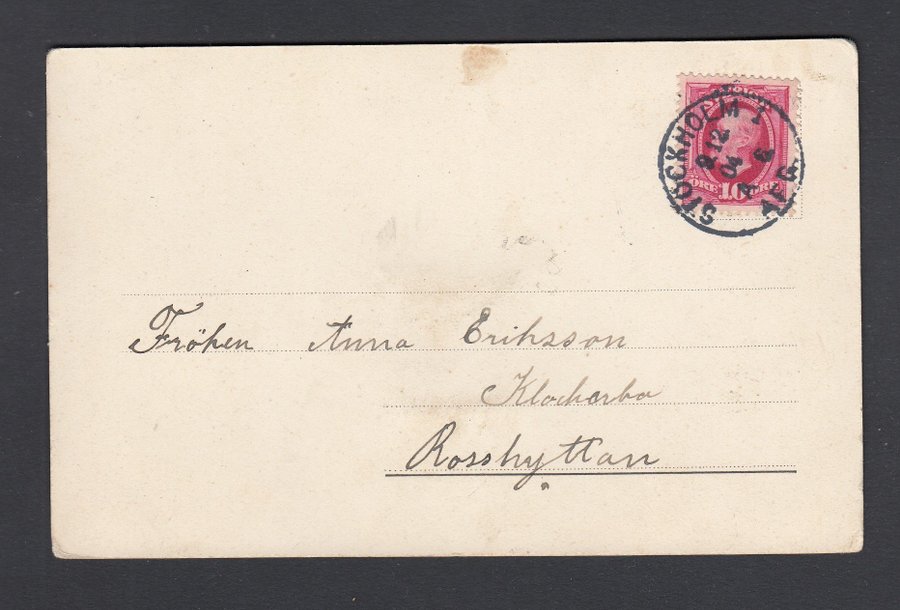 STOCKHOLM 1
2 12
04
A 6
AFG.
ÖRE 10 ÖRE
Fröken Anna Eriksson
Klockarbo
Rosshyttan